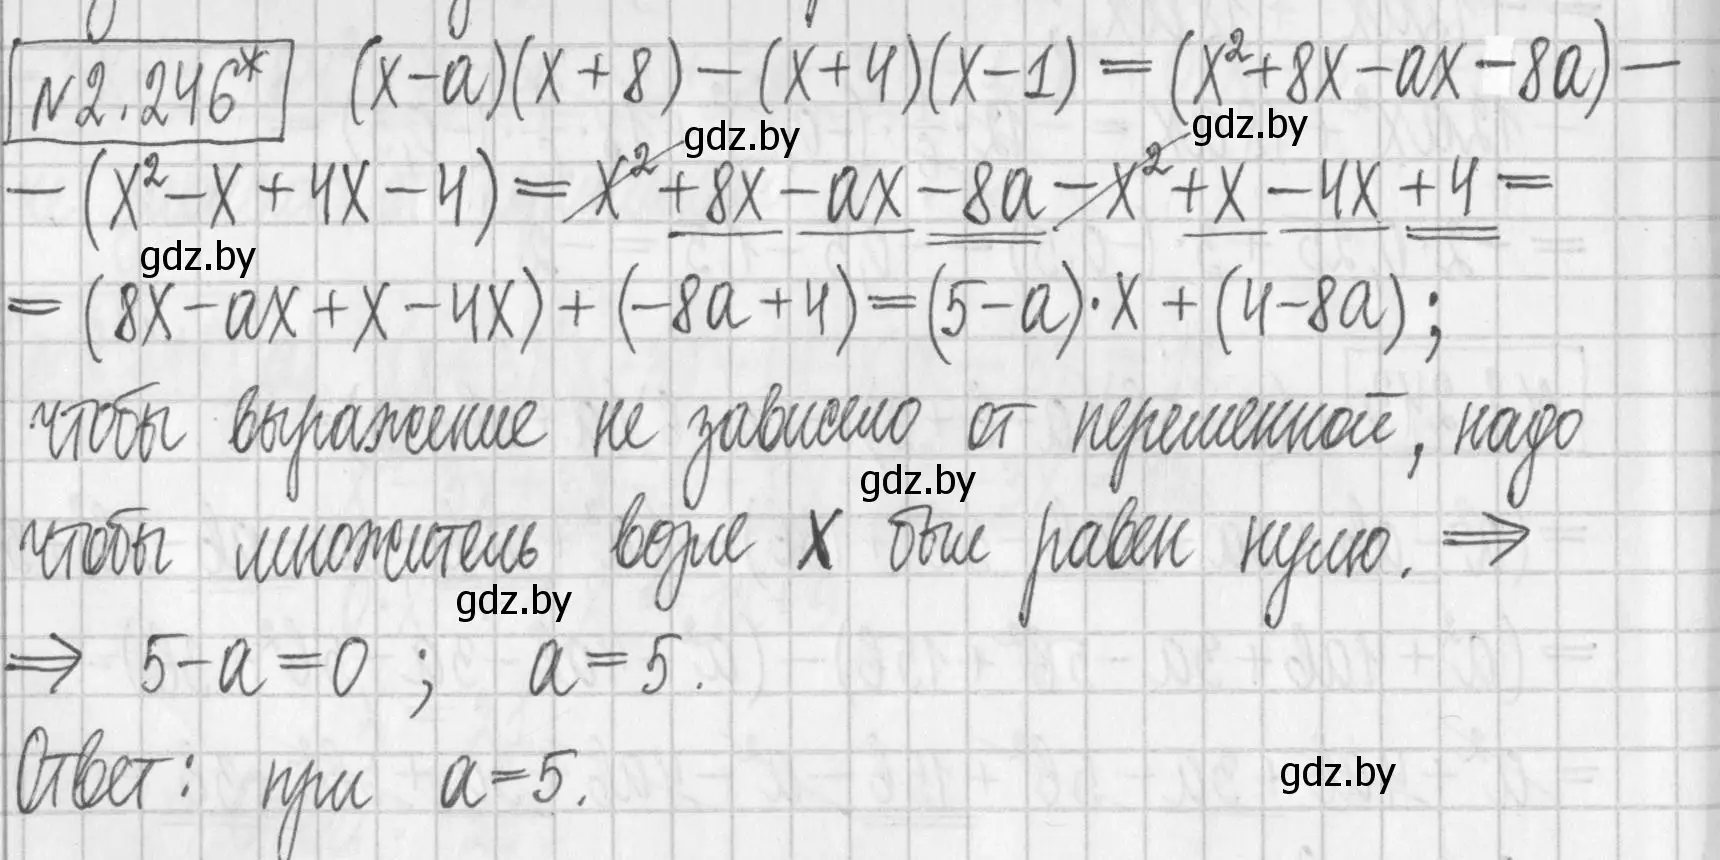 №2.246* (x-a)(x+8)-(x+4)(x-1)=(x²+8x-ax-8a)-
gdz.by gdz.by
-(x²-x+4x-4)=x²+8x-ax-8a-x²+x-4x+4=
gdz.by
=(8x-ax+x-4x)+(-8a+4)=(5-a)·x+(4-8a);
чтобы выражение не зависело от переменной, надо
gdz.by
чтобы множитель возле x был равен нулю. ⇒
gdz.by
⇒ 5-a=0; a=5.
Ответ: при a=5.
gdz.by